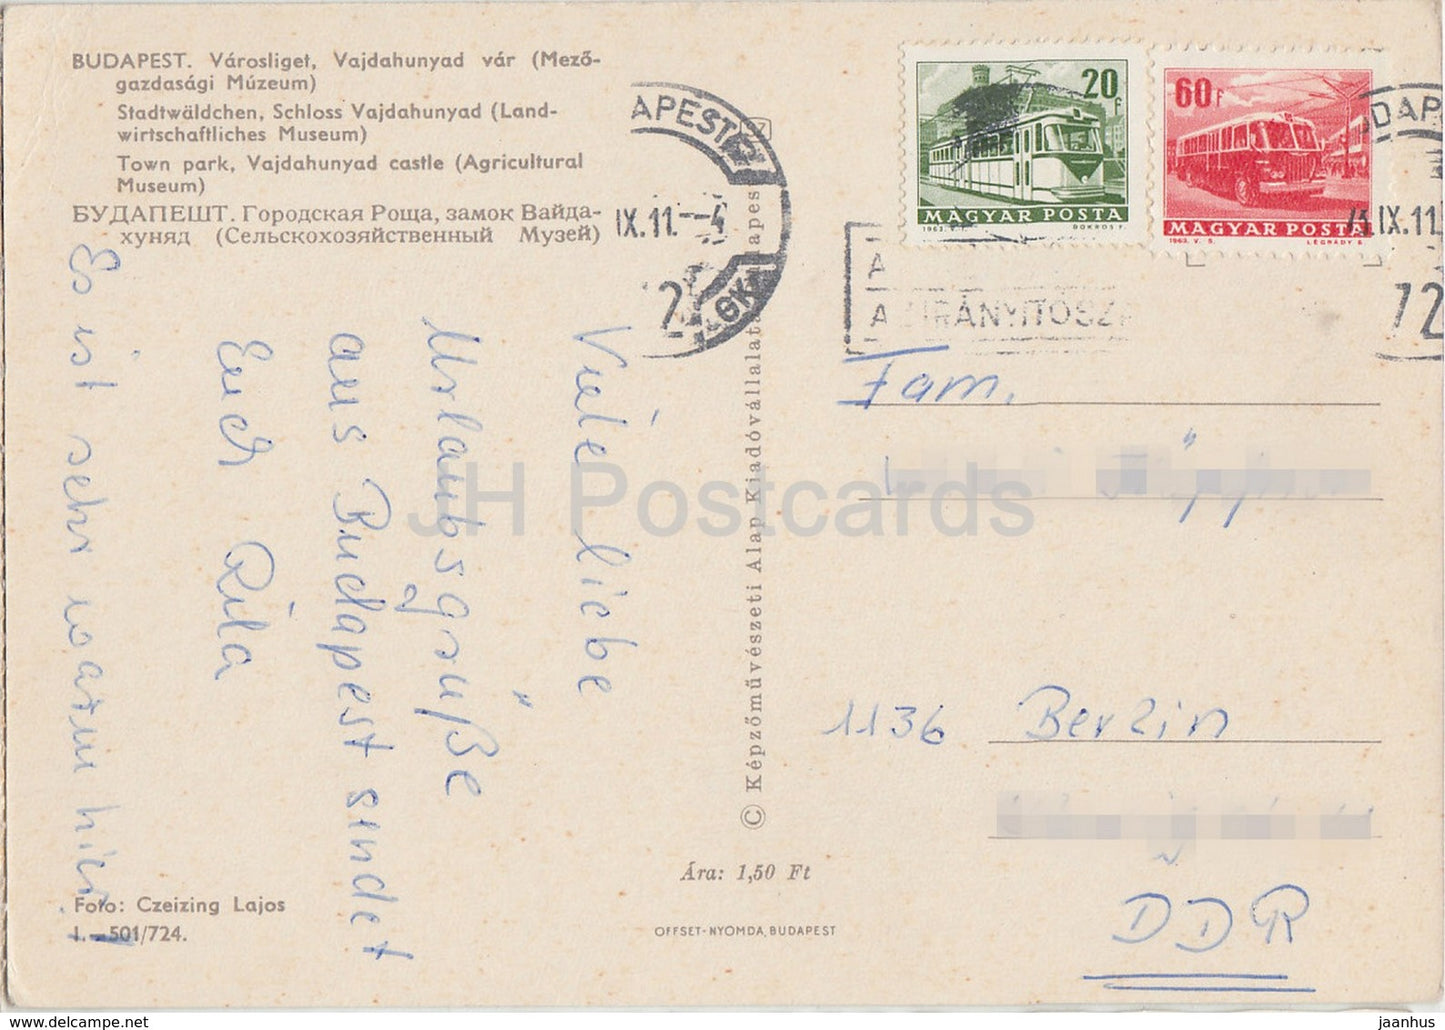 BUDAPEST. Városliget, Vajdahunyad vár (Mező-
gazdasági Múzeum)
Stadtwäldchen, Schloss Vajdahunyad (Land-
wirtschaftliches Museum)
Town park, Vajdahunyad castle (Agricultural
Museum)
БУДАПЕШТ. Городская Роща, замок Вайда-
хуняд (Сельскохозяйственный Музей)
APEST
IX.11.--4
20f
MAGYAR POSTA
1963.
BOKROS F.
60f
MAGYAR POSTA
1963. V. 5.
LÉGRÁDY S.
IX.11
72
A
A IRÁNYÍTÓSZ
Viele liebe
Urlaubsgrüße
aus Budapest sendet
Euch Rita
Es ist sehr warm hier!
© Képzőművészeti Alap Kiadóvállalata
Fam.
1136 Berlin
DDR
JH Postcards
Foto: Czeizing Lajos
I.—501/724.
Ára: 1,50 Ft
OFFSET-NYOMDA, BUDAPEST
jaanhus @ delcampe.net